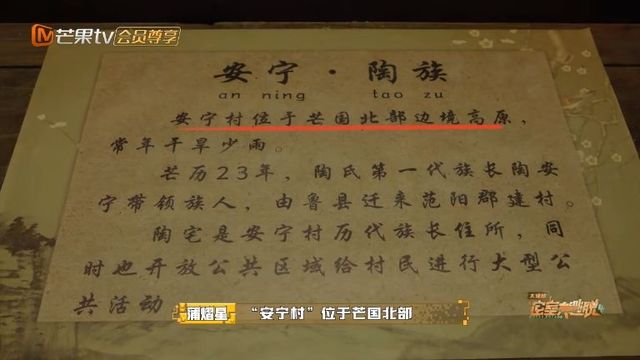 芒果tv 会员尊享
安宁·陶族
an ning tao zu
安宁村位于芒国北部边境高原，
常年干旱少雨。
芒历23年，陶氏第一代族长陶安
宁带领族人，由鲁县迁来范阳郡建村。
陶宅是安宁村历代族长住所，同
时也开放公共区域给村民进行大型公
共活动
蒲熠星 “安宁村”位于芒国北部
大侦探